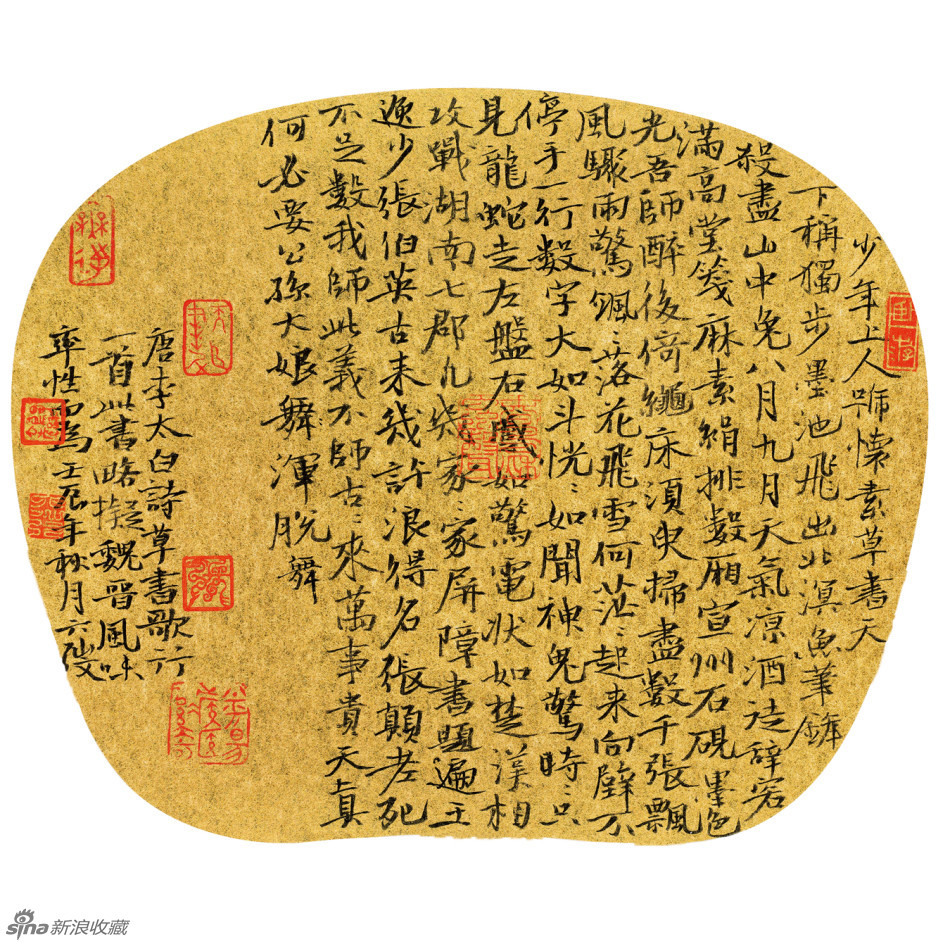 少年上人號懷素草書天
下稱獨步墨池飛出北溟魚筆鋒
殺盡山中兔八月九月天氣涼酒徒辭客
滿高堂箋麻素絹排數廂宣州石硯墨色
光吾師醉後倚繩床須臾掃盡數千張飄
風驟雨驚颯〻落花飛雪何茫〻起來向壁不
停手一行數字大如斗恍〻如聞神鬼驚時〻只
見龍蛇走左盤右蹙如驚電狀如楚漢相
攻戰湖南七郡凡幾家〻家屏障書題遍王
逸少張伯英古來幾許浪得名張顛老死
不足數我師此義不師古〻來萬事貴天真
何必要公孫大娘舞渾脫舞
唐李太白詩草書歌行
一首此書略擬魏晉風味
率性而為壬辰年秋月
sina新浪收藏